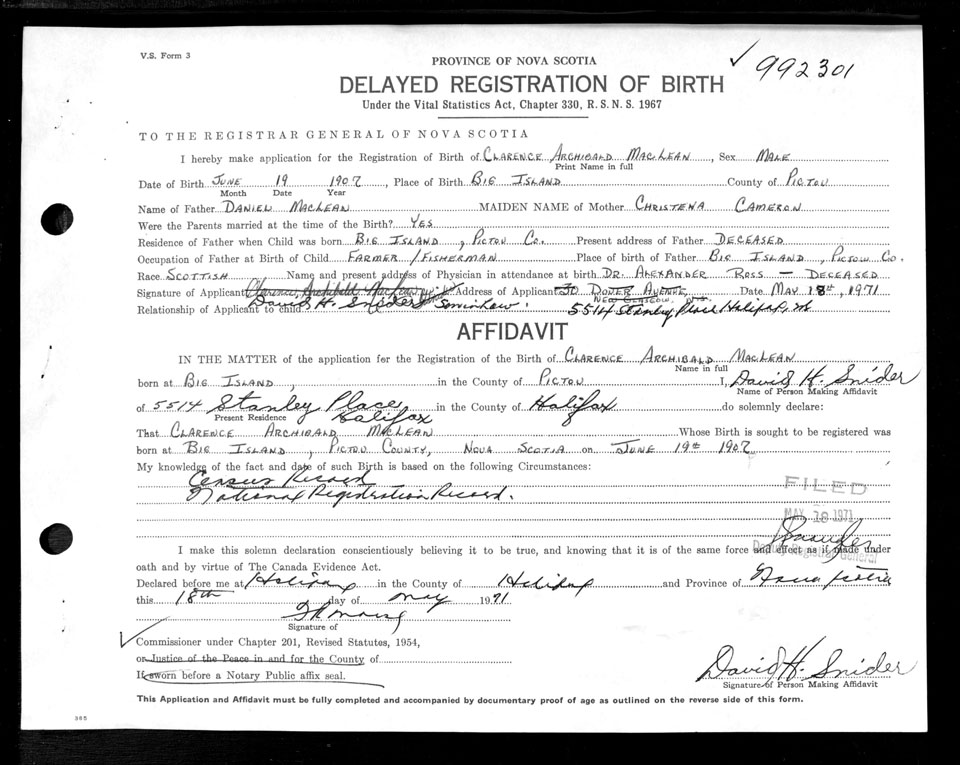 V.S. Form 3
PROVINCE OF NOVA SCOTIA
✓ 992301
DELAYED REGISTRATION OF BIRTH
Under the Vital Statistics Act, Chapter 330, R.S.N.S. 1967
TO THE REGISTRAR GENERAL OF NOVA SCOTIA
I hereby make application for the Registration of Birth of CLARENCE ARCHIBALD MACLEAN, Sex MALE
Print Name in full
Date of Birth JUNE 19 1907, Place of Birth BIG ISLAND County of PICTOU
Month Date Year
Name of Father DANIEL MACLEAN MAIDEN NAME of Mother CHRISTENA CAMERON
Were the Parents married at the time of the Birth? YES
Residence of Father when Child was born BIG ISLAND, PICTOU CO. Present address of Father DECEASED
Occupation of Father at Birth of Child FARMER / FISHERMAN Place of birth of Father BIG ISLAND, PICTOU CO.
Race SCOTTISH Name and present address of Physician in attendance at birth DR. ALEXANDER ROSS — DECEASED
Signature of Applicant Clarence Archibald MacLean Address of Applicant DOVER AVENUE, Date MAY 18th, 1971
NEW GLASGOW, N.S.
Relationship of Applicant to child David H. Snider Son in Law. 5514 Stanley Place Halifax,
AFFIDAVIT
IN THE MATTER of the application for the Registration of the Birth of CLARENCE ARCHIBALD MACLEAN
Name in full
born at BIG ISLAND, in the County of PICTOU I, David H. Snider
Name of Person Making Affidavit
of 5514 Stanley Place in the County of Halifax do solemnly declare:
Present Residence Halifax
That CLARENCE ARCHIBALD MACLEAN Whose Birth is sought to be registered was
born at BIG ISLAND, PICTOU COUNTY, NOVA SCOTIA on JUNE 19th 1907
My knowledge of the fact and date of such Birth is based on the following Circumstances:
Census Record
National Registration Record.
FILED
MAY 18 1971
Deputy Registrar General
I make this solemn declaration conscientiously believing it to be true, and knowing that it is of the same force and effect as if made under
oath and by virtue of The Canada Evidence Act.
Declared before me at Halifax in the County of Halifax and Province of Nova Scotia
this 18th day of May 1971
Signature of
✓ Commissioner under Chapter 201, Revised Statutes, 1954,
or Justice of the Peace in and for the County of
If sworn before a Notary Public affix seal.
David H. Snider
Signature of Person Making Affidavit
This Application and Affidavit must be fully completed and accompanied by documentary proof of age as outlined on the reverse side of this form.
365